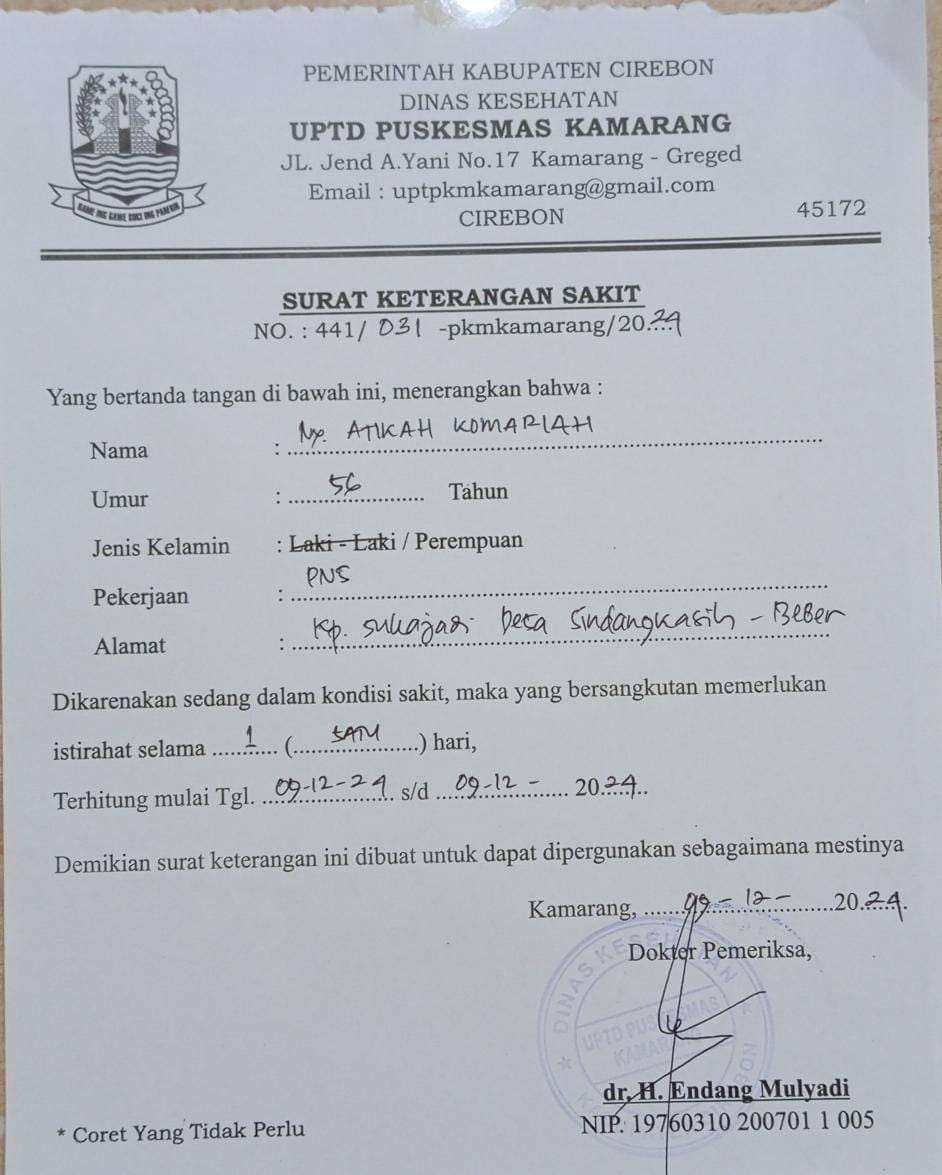 PEMERINTAH KABUPATEN CIREBON
DINAS KESEHATAN
UPTD PUSKESMAS KAMARANG
JL. Jend A.Yani No.17 Kamarang - Greged
Email : uptpkmkamarang@gmail.com
CIREBON 45172
GAWE ING GAWE SUCI ING PAMRIH
SURAT KETERANGAN SAKIT
NO. : 441/ 031 -pkmkamarang/20...24
Yang bertanda tangan di bawah ini, menerangkan bahwa :
Nama : Ny. ATIKAH KOMARIAH
Umur : 56 Tahun
Jenis Kelamin : Laki - Laki / Perempuan
Pekerjaan : PNS
Alamat : Kp. sukajadi Desa Sindangkasih - Beber
Dikarenakan sedang dalam kondisi sakit, maka yang bersangkutan memerlukan
istirahat selama 1 ( SATU ) hari,
Terhitung mulai Tgl. 09-12-24 s/d 09-12 - 2024
Demikian surat keterangan ini dibuat untuk dapat dipergunakan sebagaimana mestinya
Kamarang, 09 - 12 - 2024.
Dokter Pemeriksa,
DINAS KESEHATAN
UPTD PUSKESMAS
KAMARANG
dr. H. Endang Mulyadi
NIP. 19760310 200701 1 005
* Coret Yang Tidak Perlu